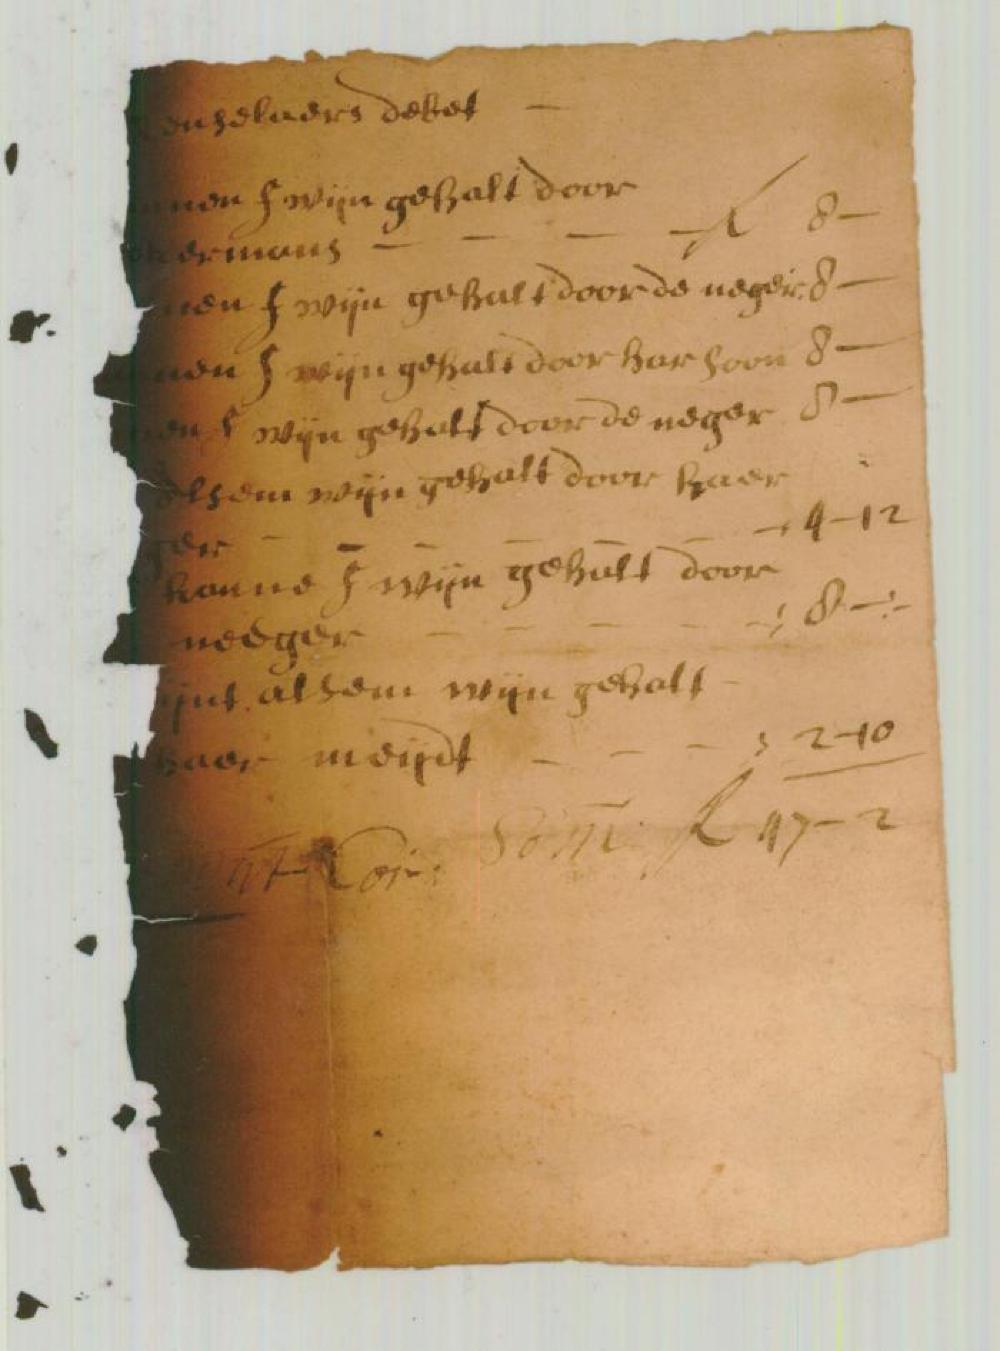 enselaers debet —
nen f wijn gehalt door
ermans — — — — f 8 —
nen f wijn gehalt door de neger 8 —
nen f wijn gehalt door har soon 8 —
en f wijn gehalt door de neger 8 —
alsem wijn gehalt door haer
ger — — — — — — 4-12
kanne f wijn gehalt door
neeger — — — — — 8 —
ijnt alsem wijn gehalt —
haer meijdt — — — 2-10
Som f 47-2